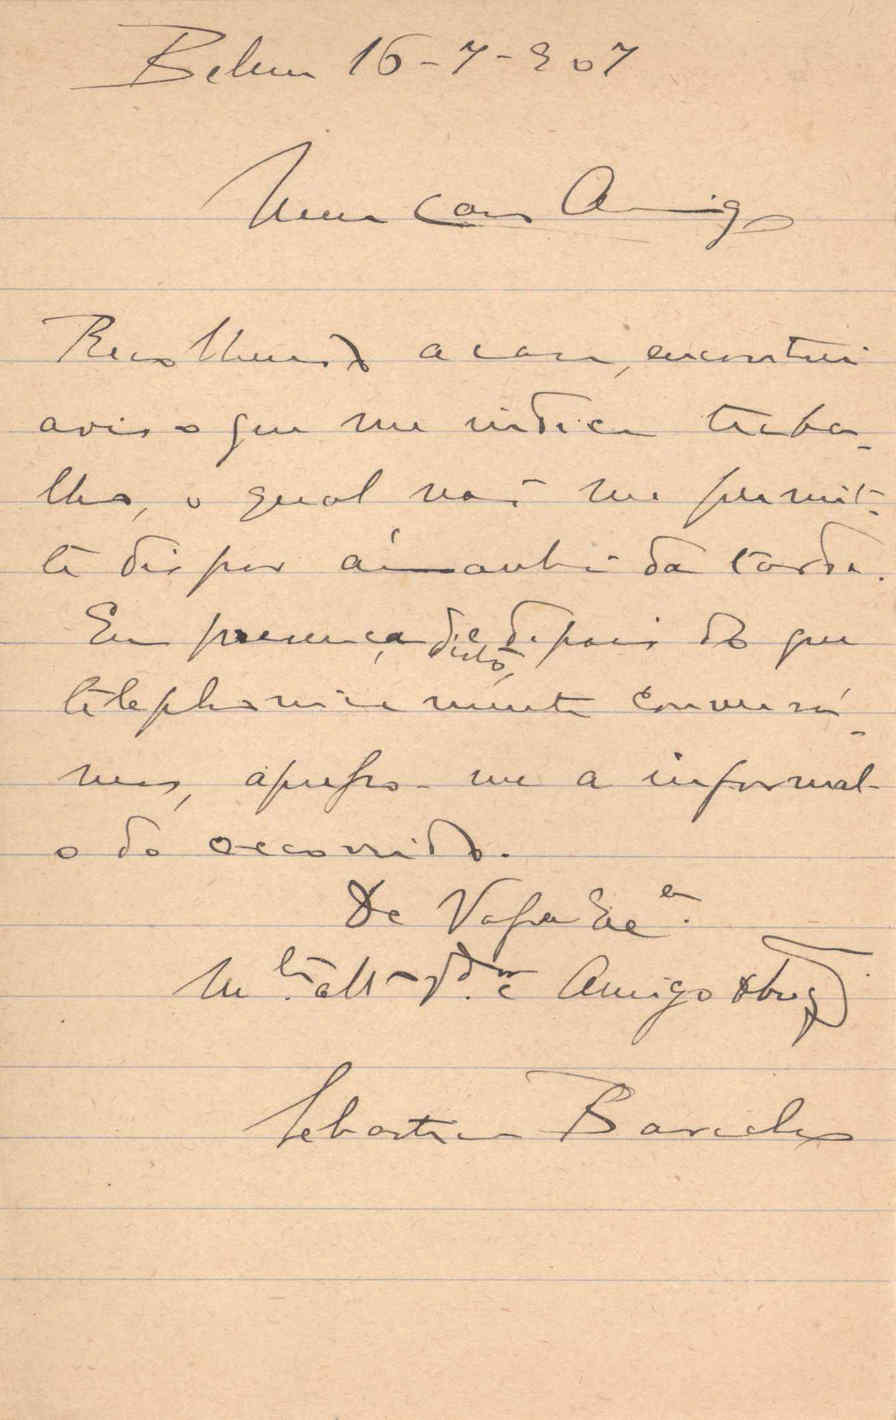 Belem 16-7-907
Meu Caro Amigo
Recolhendo a casa, encontrei
aviso que me indica traba-
lho, o qual não me permit-
te dispor ámanhã da tarde.
Em presença disto, e depois do que
telephonicamente conversá-
mos, apresso-me a informal-
o do occorrido.
De Vossa Exª.
Mto. attº Vdor e Amigo obrigdº
Sebastião Barcelos